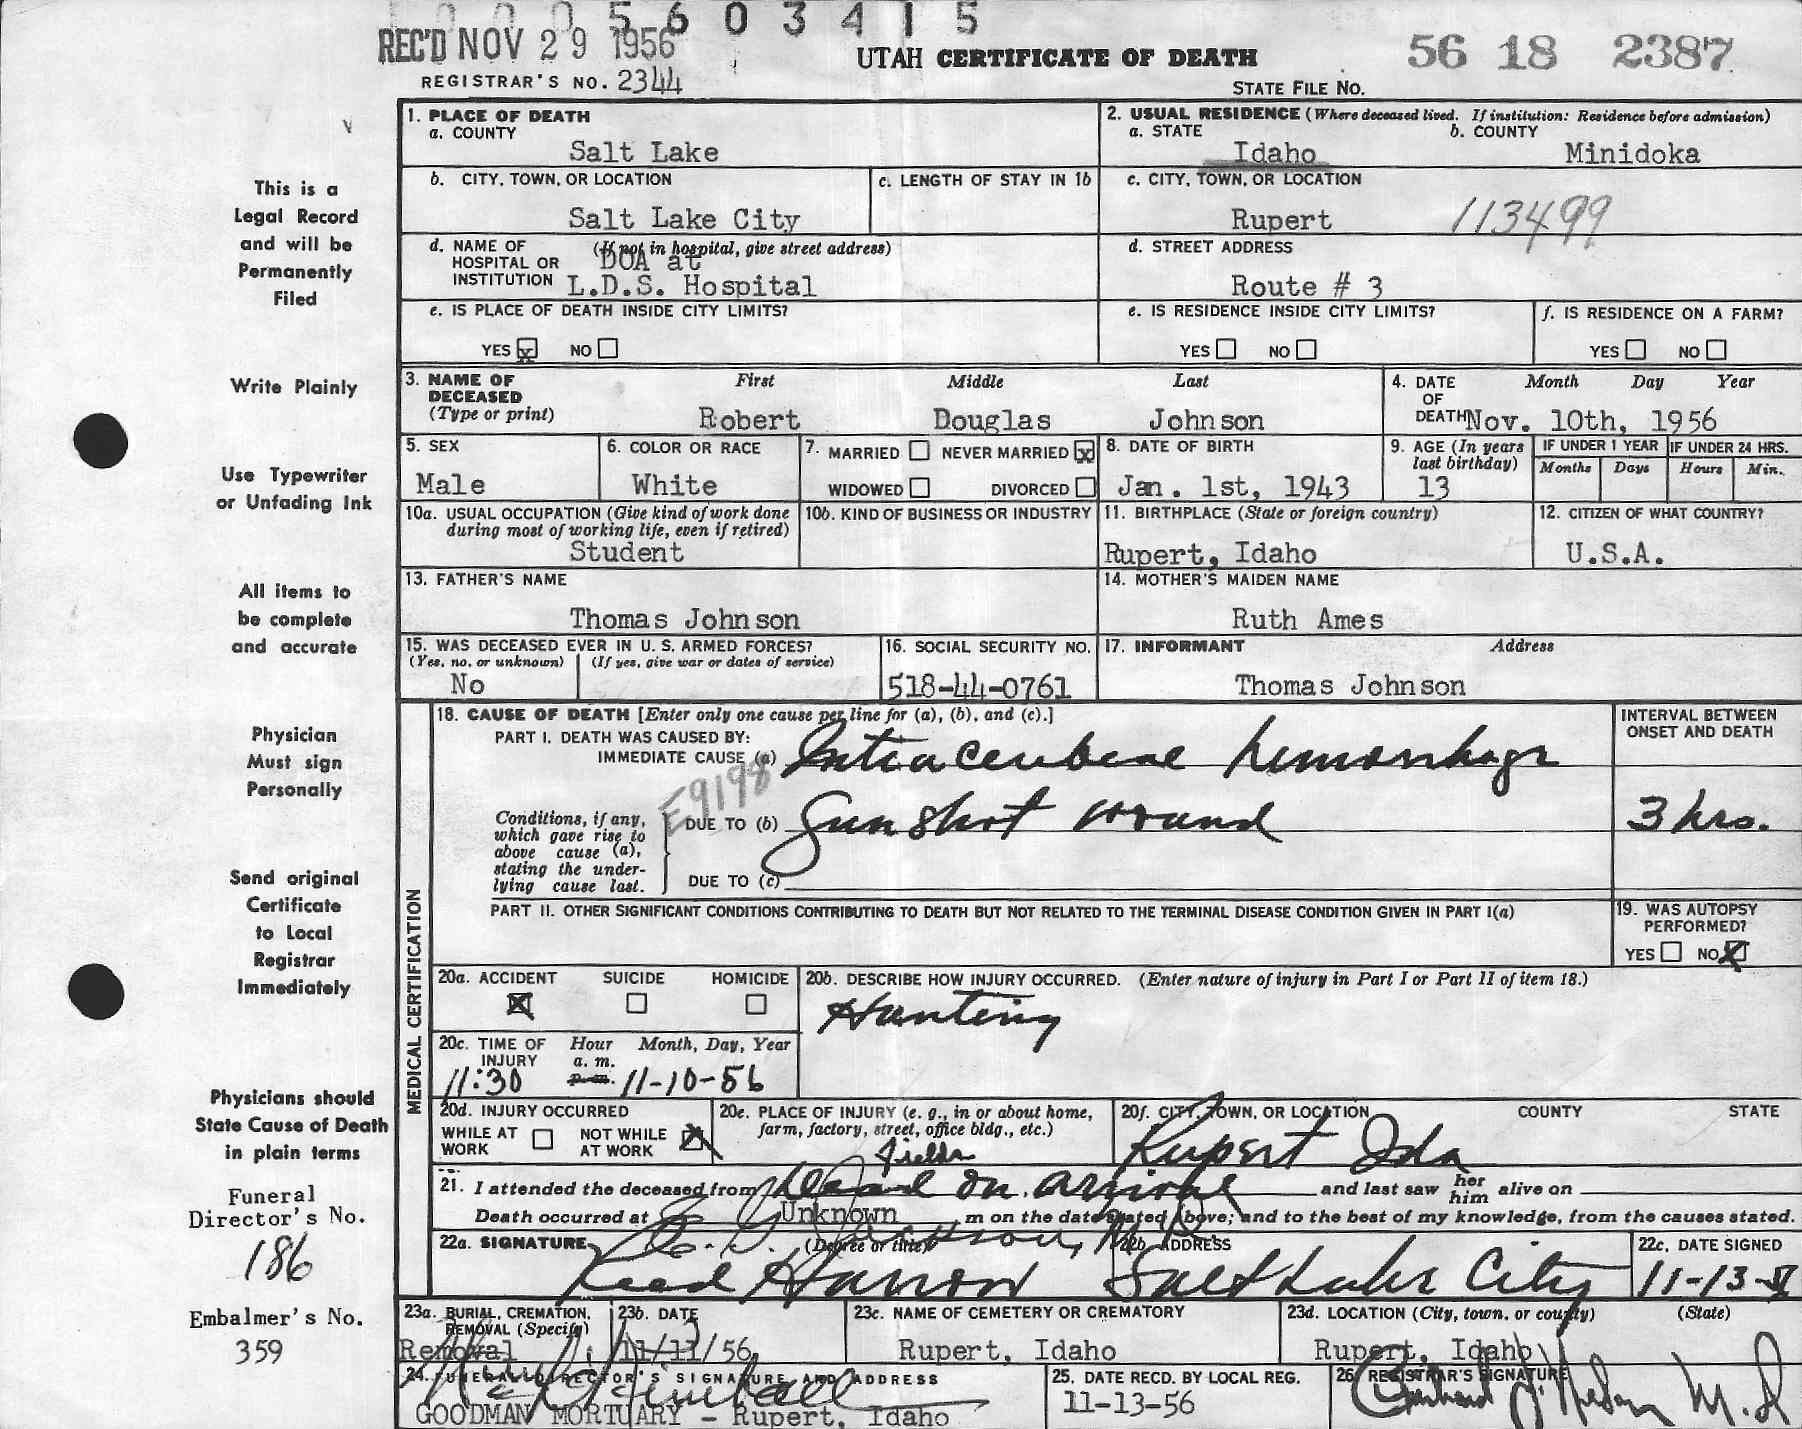 5 6 0 3 4 1 5
REC'D NOV 29 1956
UTAH CERTIFICATE OF DEATH
56 18 2387
REGISTRAR'S NO. 2344
STATE FILE NO.
This is a
Legal Record
and will be
Permanently
Filed
Write Plainly
Use Typewriter
or Unfading Ink
All items to
be complete
and accurate
Physician
Must sign
Personally
Send original
Certificate
to Local
Registrar
Immediately
Physicians should
State Cause of Death
in plain terms
Funeral
Director's No.
186
Embalmer's No.
359
1. PLACE OF DEATH
a. COUNTY
Salt Lake
2. USUAL RESIDENCE (Where deceased lived. If institution: Residence before admission)
a. STATE b. COUNTY
Idaho Minidoka
b. CITY, TOWN, OR LOCATION
Salt Lake City
c. LENGTH OF STAY IN 1b
c. CITY, TOWN, OR LOCATION
Rupert 113499
d. NAME OF HOSPITAL OR INSTITUTION (If not in hospital, give street address)
DOA at
L.D.S. Hospital
d. STREET ADDRESS
Route # 3
e. IS PLACE OF DEATH INSIDE CITY LIMITS?
YES x NO
e. IS RESIDENCE INSIDE CITY LIMITS?
YES NO
f. IS RESIDENCE ON A FARM?
YES NO
3. NAME OF DECEASED (Type or print)
First Middle Last
Robert Douglas Johnson
4. DATE OF DEATH Month Day Year
Nov. 10th, 1956
5. SEX
Male
6. COLOR OR RACE
White
7. MARRIED NEVER MARRIED x
WIDOWED DIVORCED
8. DATE OF BIRTH
Jan. 1st, 1943
9. AGE (In years last birthday)
13
IF UNDER 1 YEAR
Months Days
IF UNDER 24 HRS.
Hours Min.
10a. USUAL OCCUPATION (Give kind of work done
during most of working life, even if retired)
Student
10b. KIND OF BUSINESS OR INDUSTRY
11. BIRTHPLACE (State or foreign country)
Rupert, Idaho
12. CITIZEN OF WHAT COUNTRY?
U.S.A.
13. FATHER'S NAME
Thomas Johnson
14. MOTHER'S MAIDEN NAME
Ruth Ames
15. WAS DECEASED EVER IN U. S. ARMED FORCES?
(Yes, no, or unknown) (If yes, give war or dates of service)
No
16. SOCIAL SECURITY NO.
518-44-0761
17. INFORMANT Address
Thomas Johnson
MEDICAL CERTIFICATION
18. CAUSE OF DEATH [Enter only one cause per line for (a), (b), and (c).]
PART I. DEATH WAS CAUSED BY:
IMMEDIATE CAUSE (a) Intracerebral hemorrhage
E9198
Conditions, if any,
which gave rise to
above cause (a),
stating the under-
lying cause last.
DUE TO (b) Gun Shot wound
DUE TO (c)
INTERVAL BETWEEN
ONSET AND DEATH
3 hrs.
PART II. OTHER SIGNIFICANT CONDITIONS CONTRIBUTING TO DEATH BUT NOT RELATED TO THE TERMINAL DISEASE CONDITION GIVEN IN PART I(a)
19. WAS AUTOPSY
PERFORMED?
YES NO X
20a. ACCIDENT SUICIDE HOMICIDE
X
20b. DESCRIBE HOW INJURY OCCURRED. (Enter nature of injury in Part I or Part II of item 18.)
Hunting
20c. TIME OF INJURY Hour Month, Day, Year
a. m.
p. m.
11:30 11-10-56
20d. INJURY OCCURRED
WHILE AT WORK NOT WHILE AT WORK X
20e. PLACE OF INJURY (e. g., in or about home,
farm, factory, street, office bldg., etc.)
fields
20f. CITY, TOWN, OR LOCATION COUNTY STATE
Rupert Ida
21. I attended the deceased from Dead on arrival and last saw her him alive on
Death occurred at Unknown m on the date stated above; and to the best of my knowledge, from the causes stated.
22a. SIGNATURE (Degree or title)
22b. ADDRESS
Salt Lake City
22c. DATE SIGNED
11-13-56
23a. BURIAL, CREMATION,
REMOVAL (Specify)
Removal
23b. DATE
11/11/56
23c. NAME OF CEMETERY OR CREMATORY
Rupert, Idaho
23d. LOCATION (City, town, or county) (State)
Rupert, Idaho
24. FUNERAL DIRECTOR'S SIGNATURE AND ADDRESS
GOODMAN MORTUARY - Rupert, Idaho
25. DATE RECD. BY LOCAL REG.
11-13-56
26. REGISTRAR'S SIGNATURE